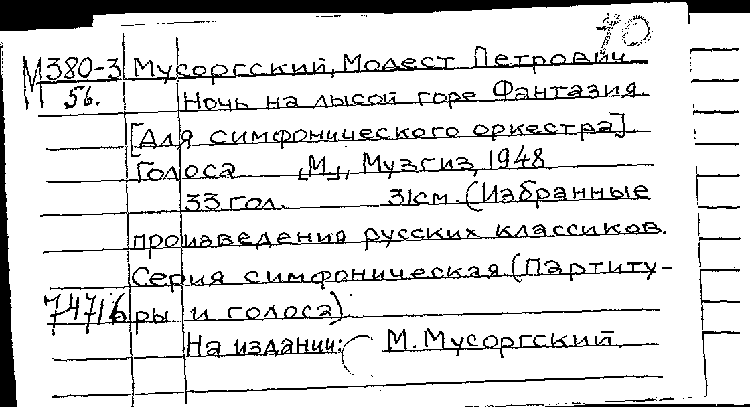 70
М380-3 Мусоргский, Модест Петрович
56. Ночь на лысой горе Фантазия.
[Для симфонического оркестра].
Голоса „М„, Музгиз, 1948
33 гол. 31см. (Избранные
произведения русских классиков.
Серия симфоническая (Партиту-
74716 ры и голоса)
На издании: М. Мусоргский.